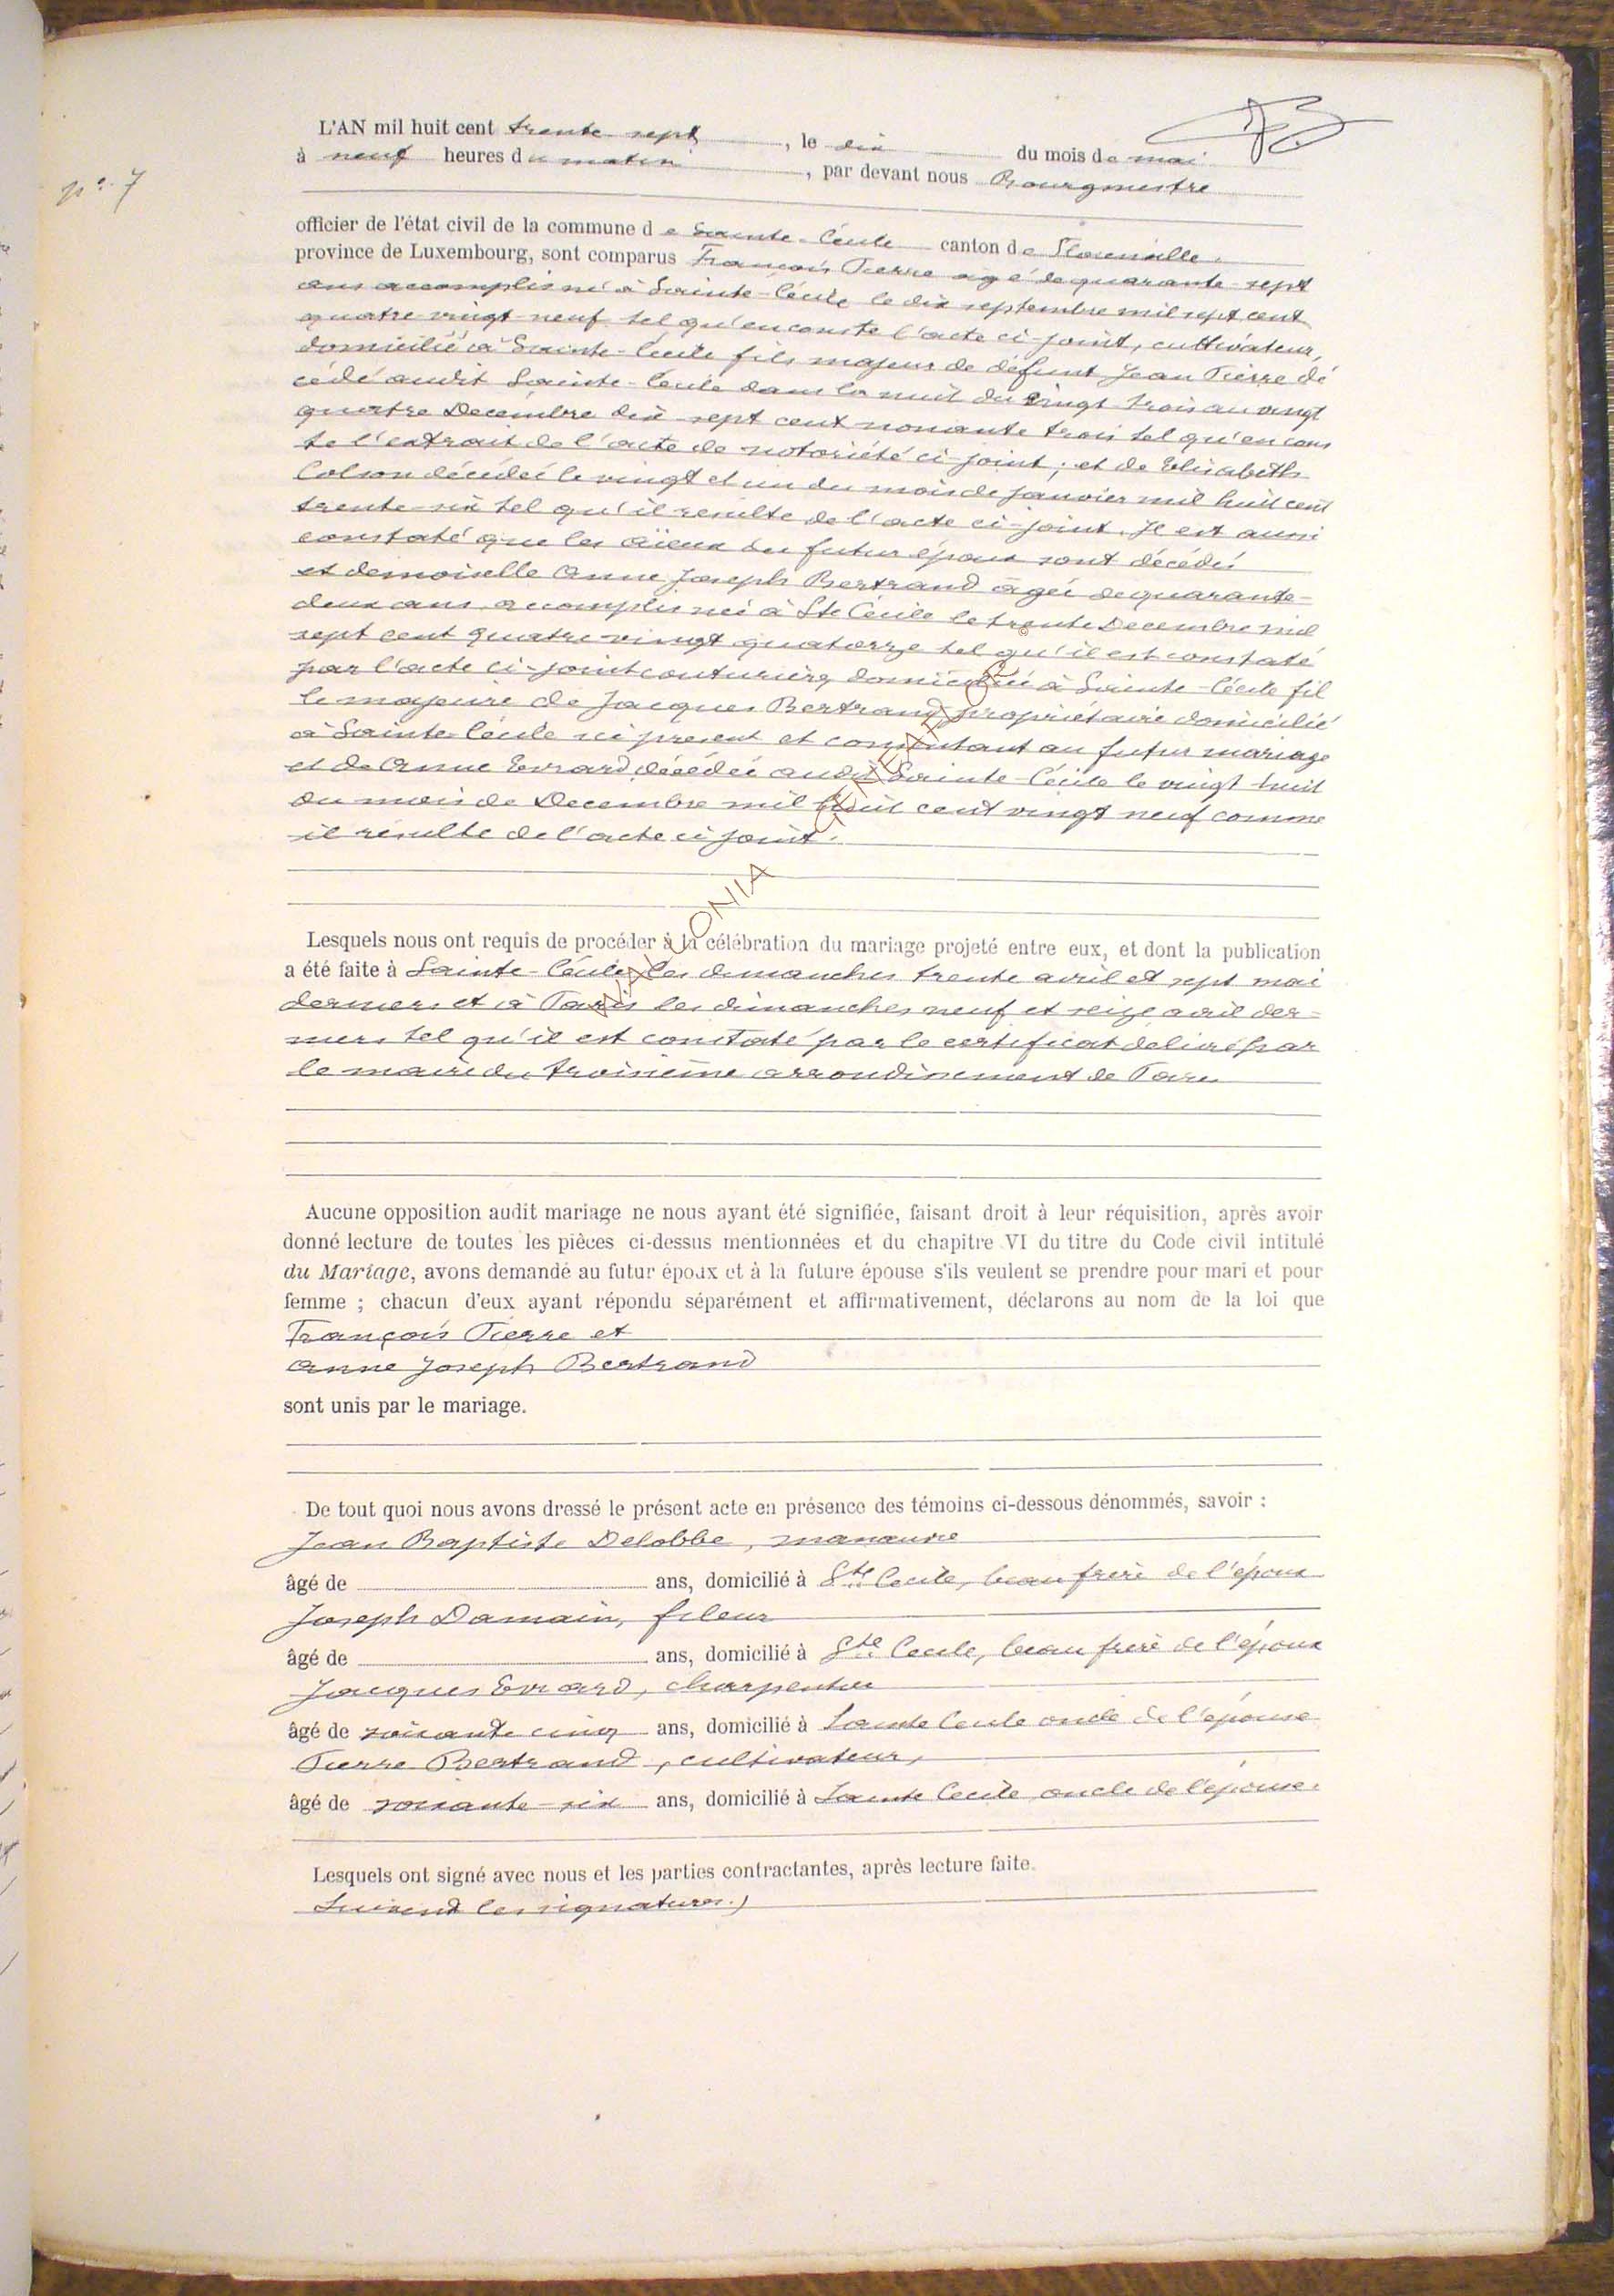 n°. 7
L'AN mil huit cent trente-sept, le dix du mois de mai
à neuf heures du matin, par devant nous Bourgmestre
officier de l'état civil de la commune de Sainte-Cécile canton de Florenville.
province de Luxembourg, sont comparus François Pierre agé de quarante-sept
ans accomplis né à Sainte-Cécile le dix septembre mil sept cent
quatre vingt-neuf tel qu'en conste l'acte ci-joint, cultivateur,
domicilié à Sainte-Cécile fils majeur de défunt Jean Pierre dé
cédé audit Sainte-Cécile dans la nuit du vingt-trois au vingt
quatre Decembre dix-sept cent nonante trois tel qu'en cons
te l'extrait de l'acte de notoriété ci-joint; et de Elisabeth
Colson décédée le vingt et un du mois de janvier mil huit cent
trente-six tel qu'il resulte de l'acte ci-joint. Il est aussi
constaté que les aïeux du futur époux sont décédés
et demoiselle Anne Joseph Bertrand agée de quarante-
deux ans accomplis née à Ste Cécile le trente Decembre mil
sept cent quatre-vingt quatorze tel qu'il est constaté
par l'acte ci-joint couturière domiciliée à Sainte-Cécile fil
le majeure de Jacques Bertrand propriétaire domicilié
à Sainte-Cécile ici present et consentant au futur mariage
et de Anne Evrard décédée audit Sainte-Cécile le vingt huit
du mois de Decembre mil huit cent vingt neuf comme
il résulte de l'acte ci joint.
WALLONIA GENEALOGY
Lesquels nous ont requis de procéder à la célébration du mariage projeté entre eux, et dont la publication
a été faite à Sainte-Cécile les dimanches trente avril et sept mai
derniers et à Paris les dimanches neuf et seize avril der=
niers tel qu'il est constaté par le certificat délivré par
le maire du troisième arrondissement de Paris
Aucune opposition audit mariage ne nous ayant été signifiée, faisant droit à leur réquisition, après avoir
donné lecture de toutes les pièces ci-dessus mentionnées et du chapitre VI du titre du Code civil intitulé
du Mariage, avons demandé au futur époux et à la future épouse s'ils veulent se prendre pour mari et pour
femme ; chacun d'eux ayant répondu séparément et affirmativement, déclarons au nom de la loi que
François Pierre et
Anne Joseph Bertrand
sont unis par le mariage.
De tout quoi nous avons dressé le présent acte en présence des témoins ci-dessous dénommés, savoir :
Jean Baptiste Delobbe, manœuvre
âgé de ans, domicilié à Ste Cécile, beau frère de l'époux
Joseph Damain, fileur
âgé de ans, domicilié à Ste Cecile, beau frère de l'époux
Jacques Evrard, charpentier
âgé de soixante cinq ans, domicilié à Sainte Cecile oncle de l'épouse
Pierre Bertrand, cultivateur,
âgé de soixante-six ans, domicilié à Sainte Cecile oncle de l'épouse.
Lesquels ont signé avec nous et les parties contractantes, après lecture faite.
Suivent les signatures.)